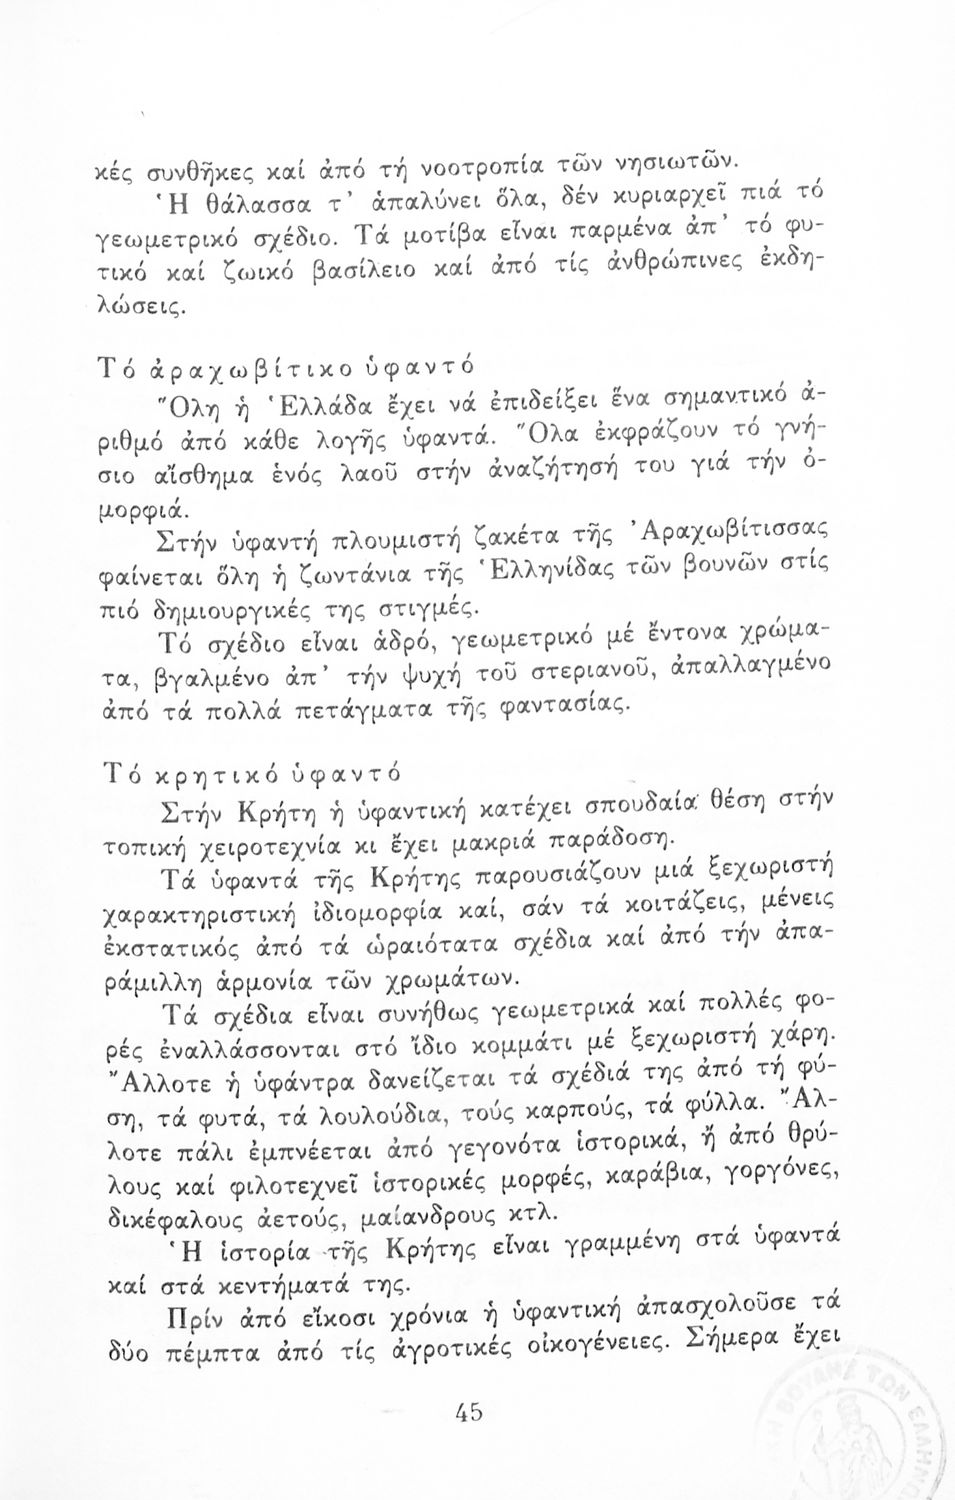 κές συνθῆκες καί ἀπό τή νοοτροπία τῶν νησιωτῶν.
Ἡ θάλασσα τ' ἁπαλύνει ὅλα, δέν κυριαρχεῖ πιά τό
γεωμετρικό σχέδιο. Τά μοτίβα εἶναι παρμένα ἀπ' τό φυ-
τικό καί ζωικό βασίλειο καί ἀπό τίς ἀνθρώπινες ἐκδη-
λώσεις.
Τό ἀραχωβίτικο ὑφαντό
Ὅλη ἡ Ἑλλάδα ἔχει νά ἐπιδείξει ἕνα σημαντικό ἀ-
ριθμό ἀπό κάθε λογῆς ὑφαντά. Ὅλα ἐκφράζουν τό γνή-
σιο αἴσθημα ἑνός λαοῦ στήν ἀναζήτησή του γιά τήν ὀ-
μορφιά.
Στήν ὑφαντή πλουμιστή ζακέτα τῆς Ἀραχωβίτισσας
φαίνεται ὅλη ἡ ζωντάνια τῆς Ἑλληνίδας τῶν βουνῶν στίς
πιό δημιουργικές της στιγμές.
Τό σχέδιο εἶναι ἁδρό, γεωμετρικό μέ ἔντονα χρώμα-
τα, βγαλμένο ἀπ' τήν ψυχή τοῦ στεριανοῦ, ἀπαλλαγμένο
ἀπό τά πολλά πετάγματα τῆς φαντασίας.
Τό κρητικό ὑφαντό
Στήν Κρήτη ἡ ὑφαντική κατέχει σπουδαία θέση στήν
τοπική χειροτεχνία κι ἔχει μακριά παράδοση.
Τά ὑφαντά τῆς Κρήτης παρουσιάζουν μιά ξεχωριστή
χαρακτηριστική ἰδιομορφία καί, σάν τά κοιτάζεις, μένεις
ἐκστατικός ἀπό τά ὡραιότατα σχέδια καί ἀπό τήν ἀπα-
ράμιλλη ἁρμονία τῶν χρωμάτων.
Τά σχέδια εἶναι συνήθως γεωμετρικά καί πολλές φο-
ρές ἐναλλάσσονται στό ἴδιο κομμάτι μέ ξεχωριστή χάρη.
Ἄλλοτε ἡ ὑφάντρα δανείζεται τά σχέδιά της ἀπό τή φύ-
ση, τά φυτά, τά λουλούδια, τούς καρπούς, τά φύλλα. Ἄλ-
λοτε πάλι ἐμπνέεται ἀπό γεγονότα ἱστορικά, ἤ ἀπό θρύ-
λους καί φιλοτεχνεῖ ἱστορικές μορφές, καράβια, γοργόνες,
δικέφαλους ἀετούς, μαίανδρους κτλ.
Ἡ ἱστορία τῆς Κρήτης εἶναι γραμμένη στά ὑφαντά
καί στά κεντήματά της.
Πρίν ἀπό εἴκοσι χρόνια ἡ ὑφαντική ἀπασχολοῦσε τά
δύο πέμπτα ἀπό τίς ἀγροτικές οἰκογένειες. Σήμερα ἔχει
45
ΒΟΥΛΗΣ ΤΩΝ